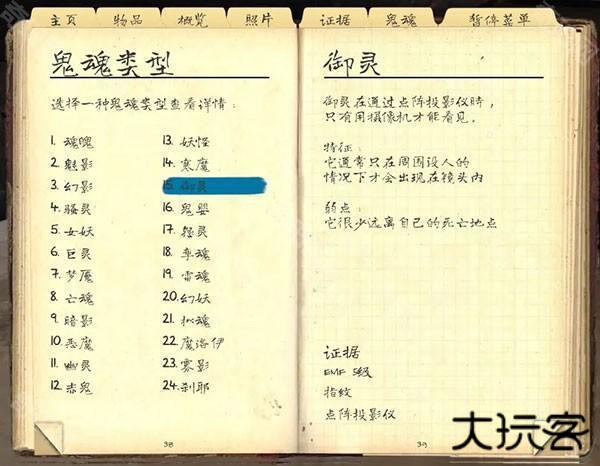 主页 物品 概览 照片 证据 鬼魂 暂停菜单
鬼魂类型
选择一种鬼魂类型查看详情：
1. 魂魄
2. 魅影
3. 幻影
4. 骚灵
5. 女妖
6. 巨灵
7. 梦魇
8. 亡魂
9. 暗影
10. 恶魔
11. 幽灵
12. 赤鬼
13. 妖怪
14. 寒魔
15. 御灵
16. 鬼婴
17. 怨灵
18. 孪魂
19. 雷魂
20. 幻妖
21. 拟魂
22. 魔洛伊
23. 雾影
24. 刹耶
38
御灵
御灵在通过点阵投影仪时，
只有用摄像机才能看见。
特征：
它通常只在周围没人的
情况下才会出现在镜头内
弱点：
它很少远离自己的死亡地点
证据
EMF 5级
指纹
点阵投影仪
39
大玩客